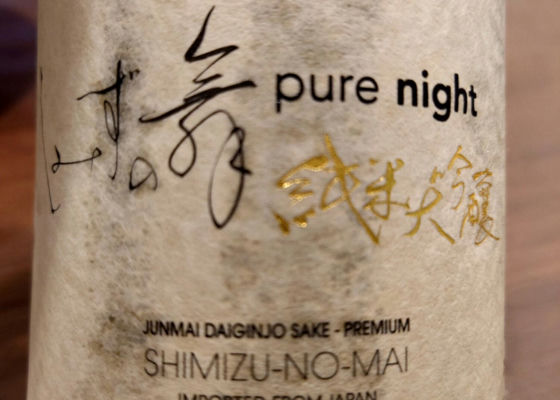 しみずの舞 pure night
純米大吟醸
JUNMAI DAIGINJO SAKE - PREMIUM
SHIMIZU-NO-MAI
IMPORTED FROM JAPAN